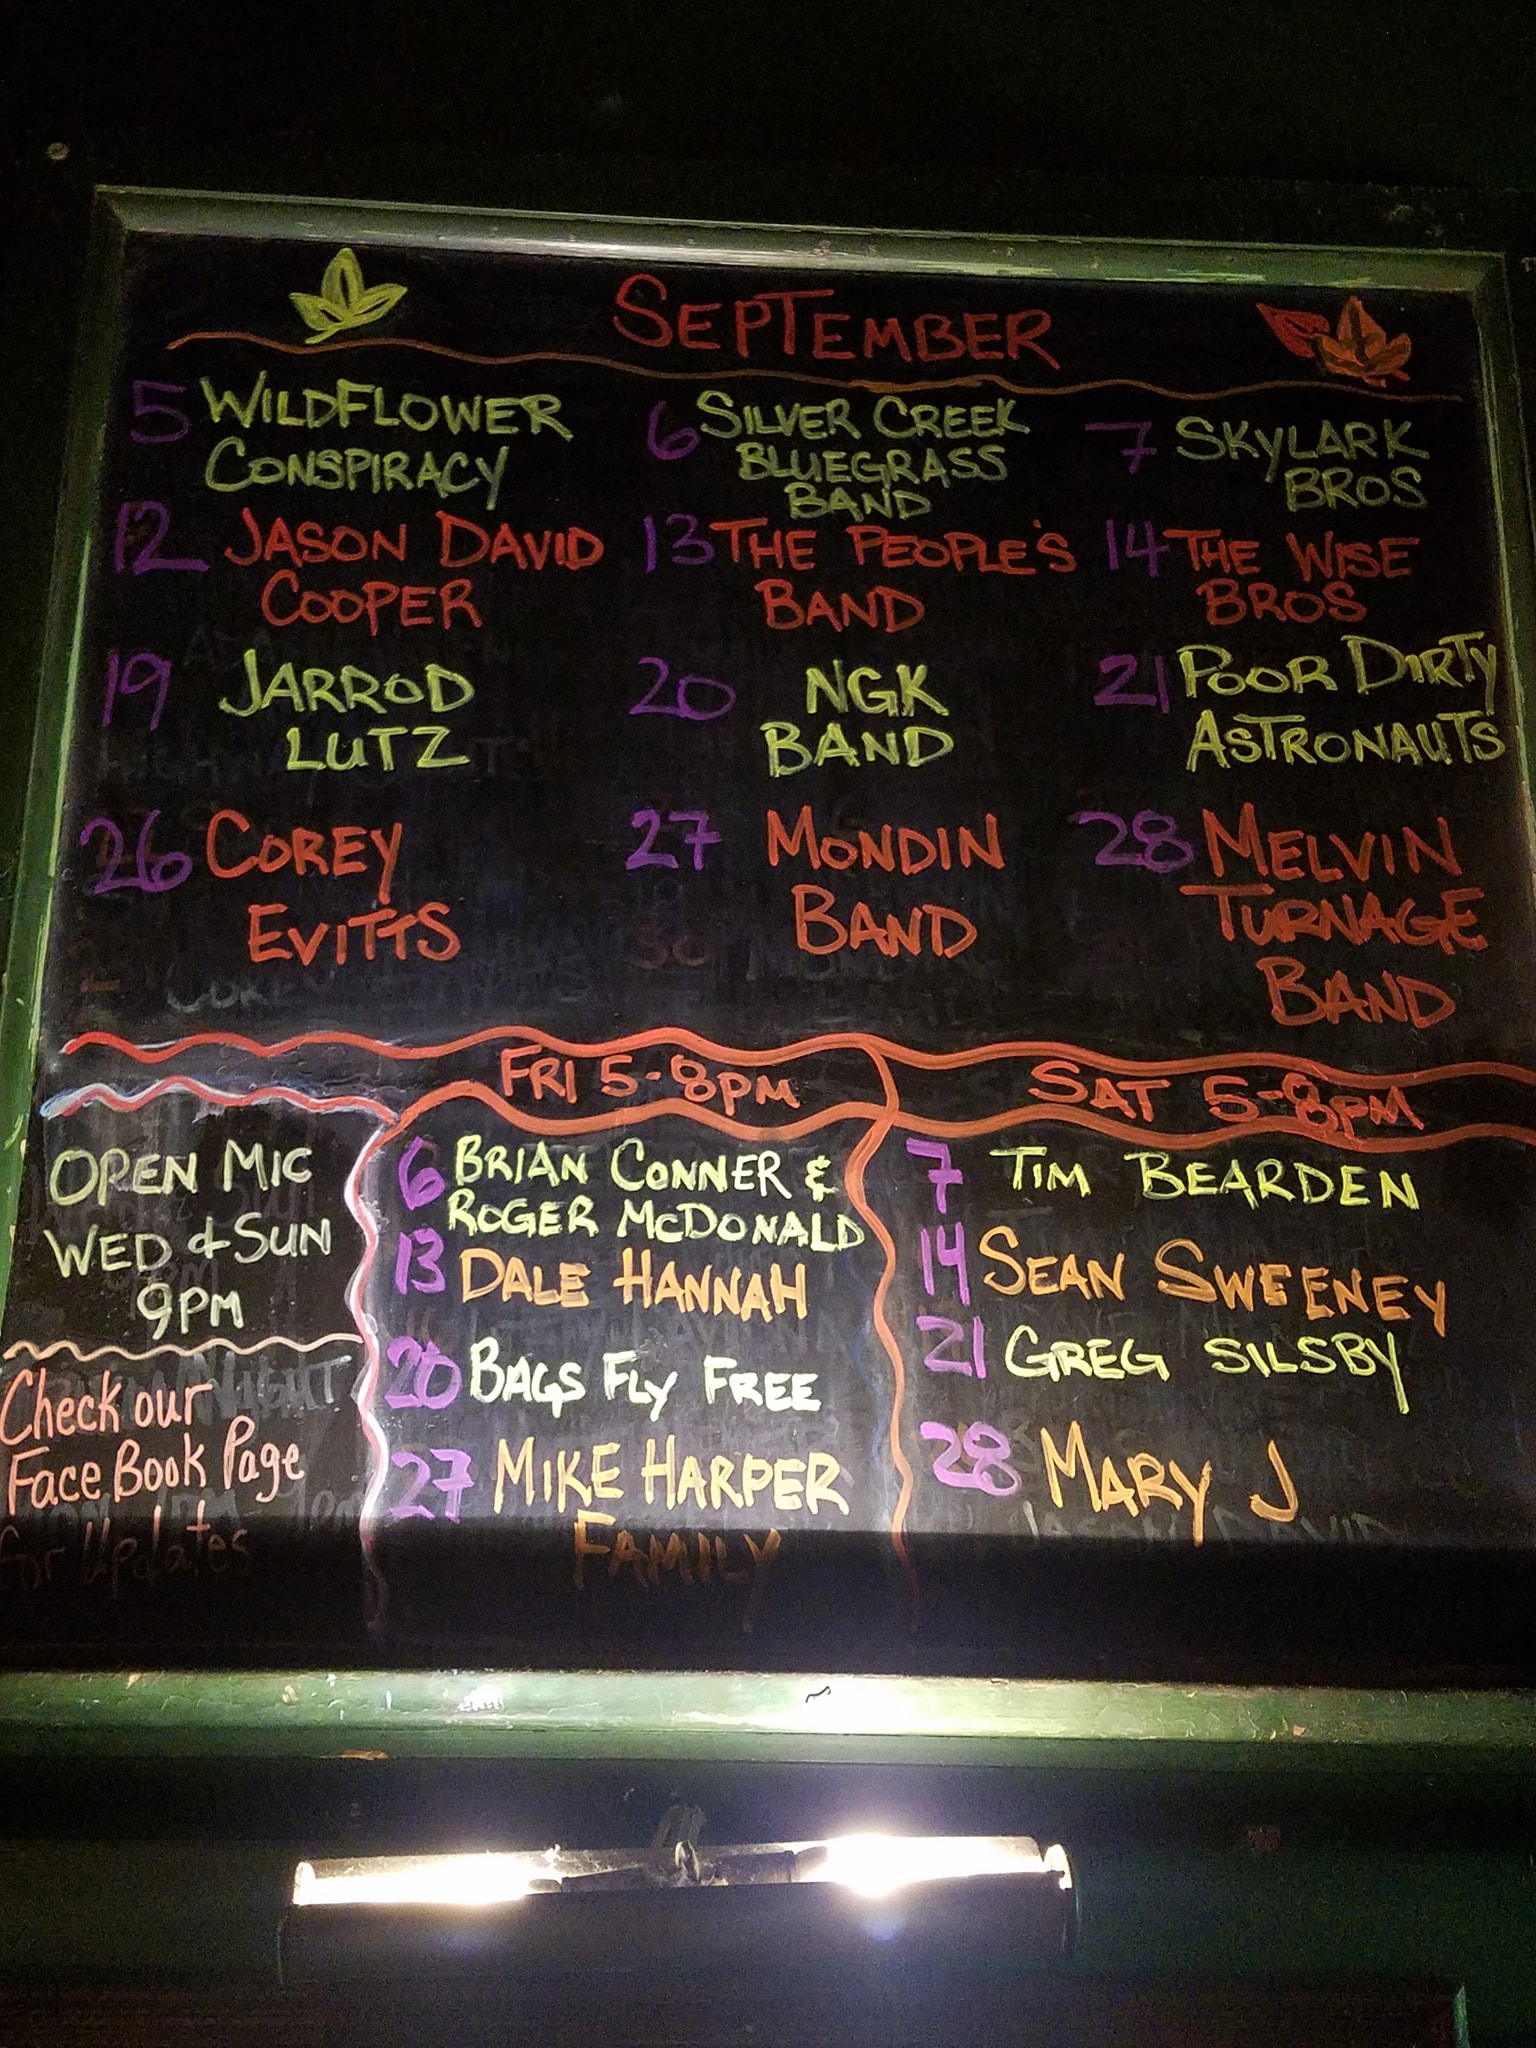 SEPTEMBER
5 WILDFLOWER CONSPIRACY
6 SILVER CREEK BLUEGRASS BAND
7 SKYLARK BROS
12 JASON DAVID COOPER
13 THE PEOPLE'S BAND
14 THE WISE BROS
19 JARROD LUTZ
20 NGK BAND
21 POOR DIRTY ASTRONAUTS
26 COREY EVITTS
27 MONDIN BAND
28 MELVIN TURNAGE BAND
OPEN MIC
WED & SUN
9PM
Check our
FaceBook Page
for Updates
FRI 5-8PM
6 BRIAN CONNER &
ROGER MCDONALD
13 DALE HANNAH
20 BAGS FLY FREE
27 MIKE HARPER
FAMILY
SAT 5-8PM
7 TIM BEARDEN
14 SEAN SWEENEY
21 GREG SILSBY
28 MARY J